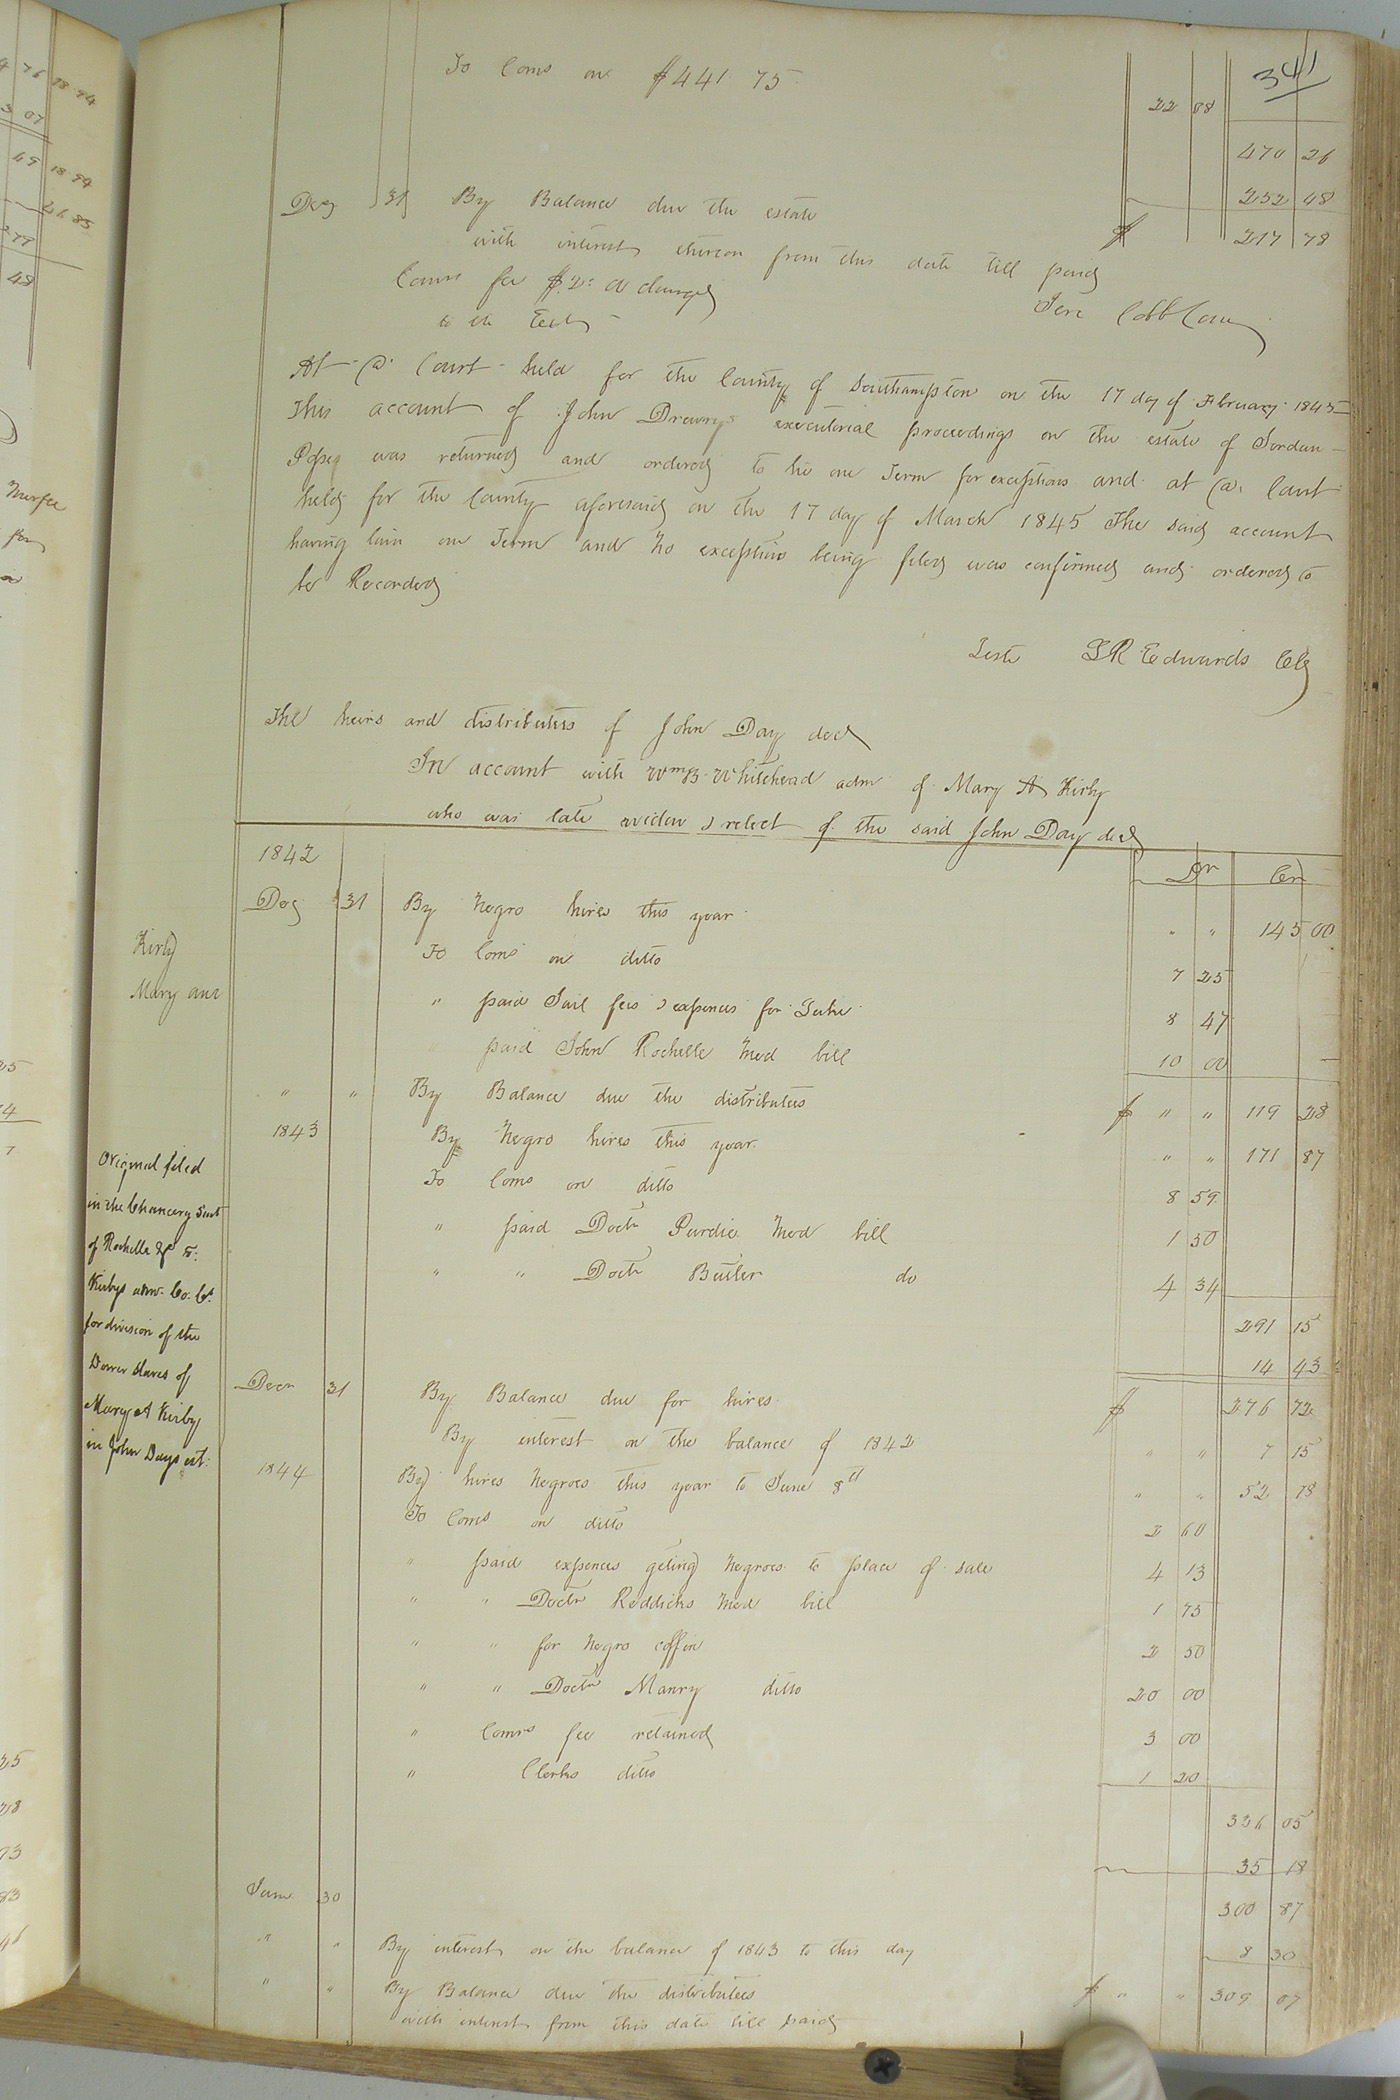 341
To Coms on $441.75 22 08
470 26
252 48
Decr 31 By Balance due the estate $ 217 78
with interest thereon from this date till paid
Coms fee $2: a charged
to the Test
Jere Cobb Com
At a Court held for the County of Southampton on the 17 day of February 1845
This account of John Drewrys executorial proceedings on the estate of Jordan
was returned and ordered to lie one Term for exceptions and at a Court
held for the County aforesaid on the 17 day of March 1845 The said account
having lain one Term and no exceptions being filed was confirmed and ordered to
be Recorded
Teste LR Edwards Clk
The heirs and distributees of John Day decd
In account with Wm B. Whitehead adm of Mary A Kirby
who was late widow & relect of the said John Day decd
1842 Dr Cr
Dec 31 By Negro hires this year " " 145 00
To Coms on ditto 7 25
" paid Jail fees & expences for 8 47
paid John Rochelle Med bill 10 00
" " By Balance due the distributees $ " " 119 28
1843 By Negro hires this year " " 171 87
To Coms on ditto 8 59
" paid Doctr Purdie Med bill 1 50
" " Doctr Butler do 4 34
291 15
14 43
Decr 31 By Balance due for hires $ 276 72
By interest on the balance of 1842 " " 7 15
1844 By hires Negroes this year to June 8th " " 52 18
To Coms on ditto 2 60
" paid expences geting Negroes to place of sale 4 13
" " Doctr Reddicks Med bill 1 75
" " for Negro coffin 2 50
" " Doctr Manry ditto 20 00
" Comrs fee retained 3 00
" Clerks ditto 1 20
336 05
35 18
June 30 300 87
" " By interest on the balance of 1843 to this day 8 30
" " By Balance due the distributees $ " " 309 07
with interest from this date till paid
Kirby
Mary ann
Original filed
in the Chancery Suit
of Rochelle &c v.
Kirbys adm. Co. Ct.
for division of the
Dower slaves of
Mary A Kirby
in John Days est: